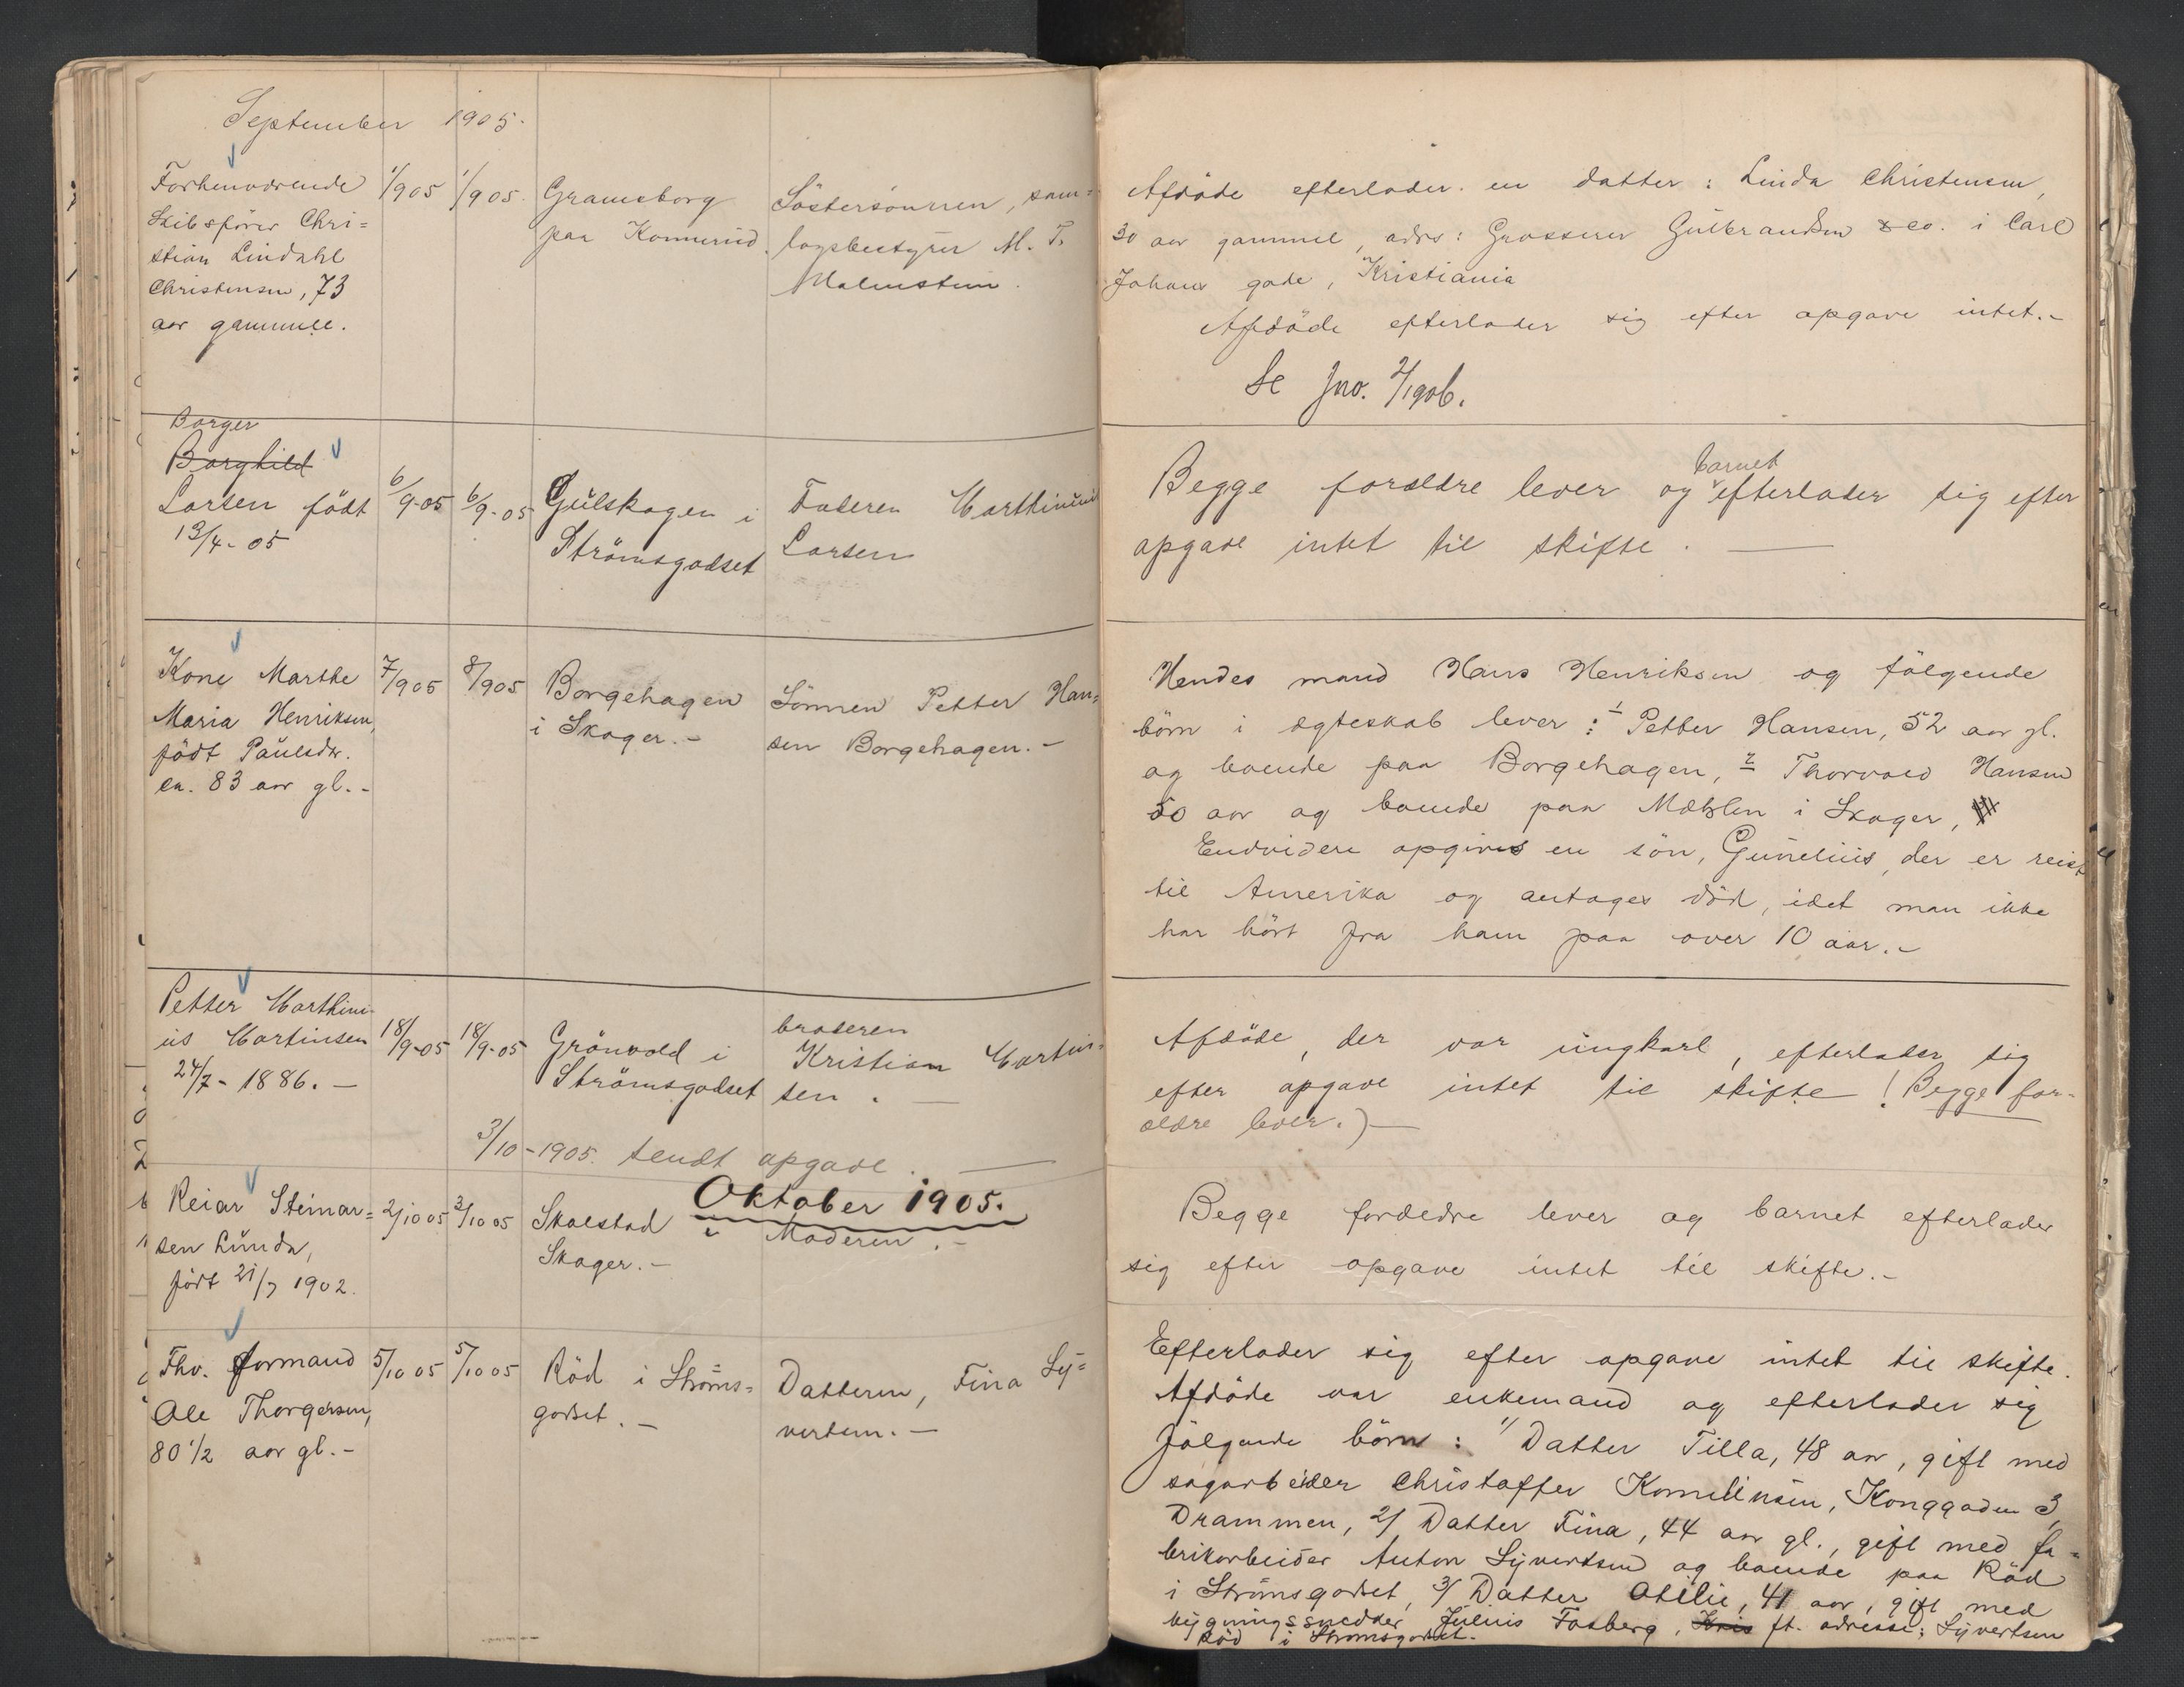 September 1905.
Forhenværende
Skibsfører Chri=
stian Lindahl
Christensen, 73
aar gammel.
1/9 05
1/9 05.
Gramsborg
paa Konnerud.
Søstersønnen, sam=
lagsbestyrer M. T.
Malmstein.
Afdøde efterlader en datter: Linda Christensen,
30 aar gammel, adrs: Grosserer Gulbrandsen & co. i Carl
Johans gade, Kristiania
Afdøde efterlader sig efter opgave intet.-
Se Jno. 2/1906.
Borger
Borghild
Larsen födt
13/4- 05
6/9-05
6/9-05
Gulskogen i
Strömsgodset
Faderen Marthinius
Larsen
Begge foreldre lever og barnet efterlader sig efter
opgave intet til skifte. —
Kone Marthe
Maria Henriksen,
födt Paulsdr.
ca. 83 aar gl.-
7/9 05
8/9 05
Borgehagen
i Skoger.-
Sönnen Petter Han=
sen Borgehagen.-
Hendes mand Hans Henriksen og fölgende
börn i ægteskab lever: 1 Petter Hansen, 52 aar gl.
og boende paa Borgehagen, 2 Thorvald Hansen
50 aar og boende paa Mæhlen i Skoger,
Endvidere opgives en sön, Gunelius, der er reist
til Amerika og antages död, idet man ikke
har hört fra ham paa over 10 aar.-
Petter Marthini-
us Martinsen
24/7- 1886. —
18/9-05
18/9-05
Grönvold i
Strömsgodset
broderen
Kristian Martin=
sen. —
Afdöde, der var ungkarl, efterlader sig
efter opgave intet til skifte (Begge for-
ældre lever.)—
3/10-1905. sendt opgave. —
Oktober 1905.
Reiar Steinar=
sen Lunda,
födt 21/7 1902.
2/10 05
3/10 05
Skalstad i
Skoger.-
Moderen.-
Begge forældre lever og barnet efterlader
sig efter opgave intet til skifte.-
Fhv. formand
Ole Thorgersen,
80 1/2 aar gl.-
5/10 05
5/10 05
Röd i Ströms=
godset.-
Datteren, Fina Sy=
vertsen.-
Efterlader sig efter opgave intet til skifte.
Afdöde var enkemand og efterlader sig
fölgende börn: 1/ Datter Tilla, 48 aar, gift med
sagarbeider Christoffer Korneliusen, Konggaden 3,
Drammen, 2/ Datter Fina, 44 aar gl., gift med fa=
brikarbeider Anton Syvertsen og boende paa Röd
i Strömsgodset, 3/ Datter Otilie, 41 aar, gift med
bygningssnedker Julius Fosberg, Kris ft. adresse: Syvertsen
Röd i Strömsgodset.